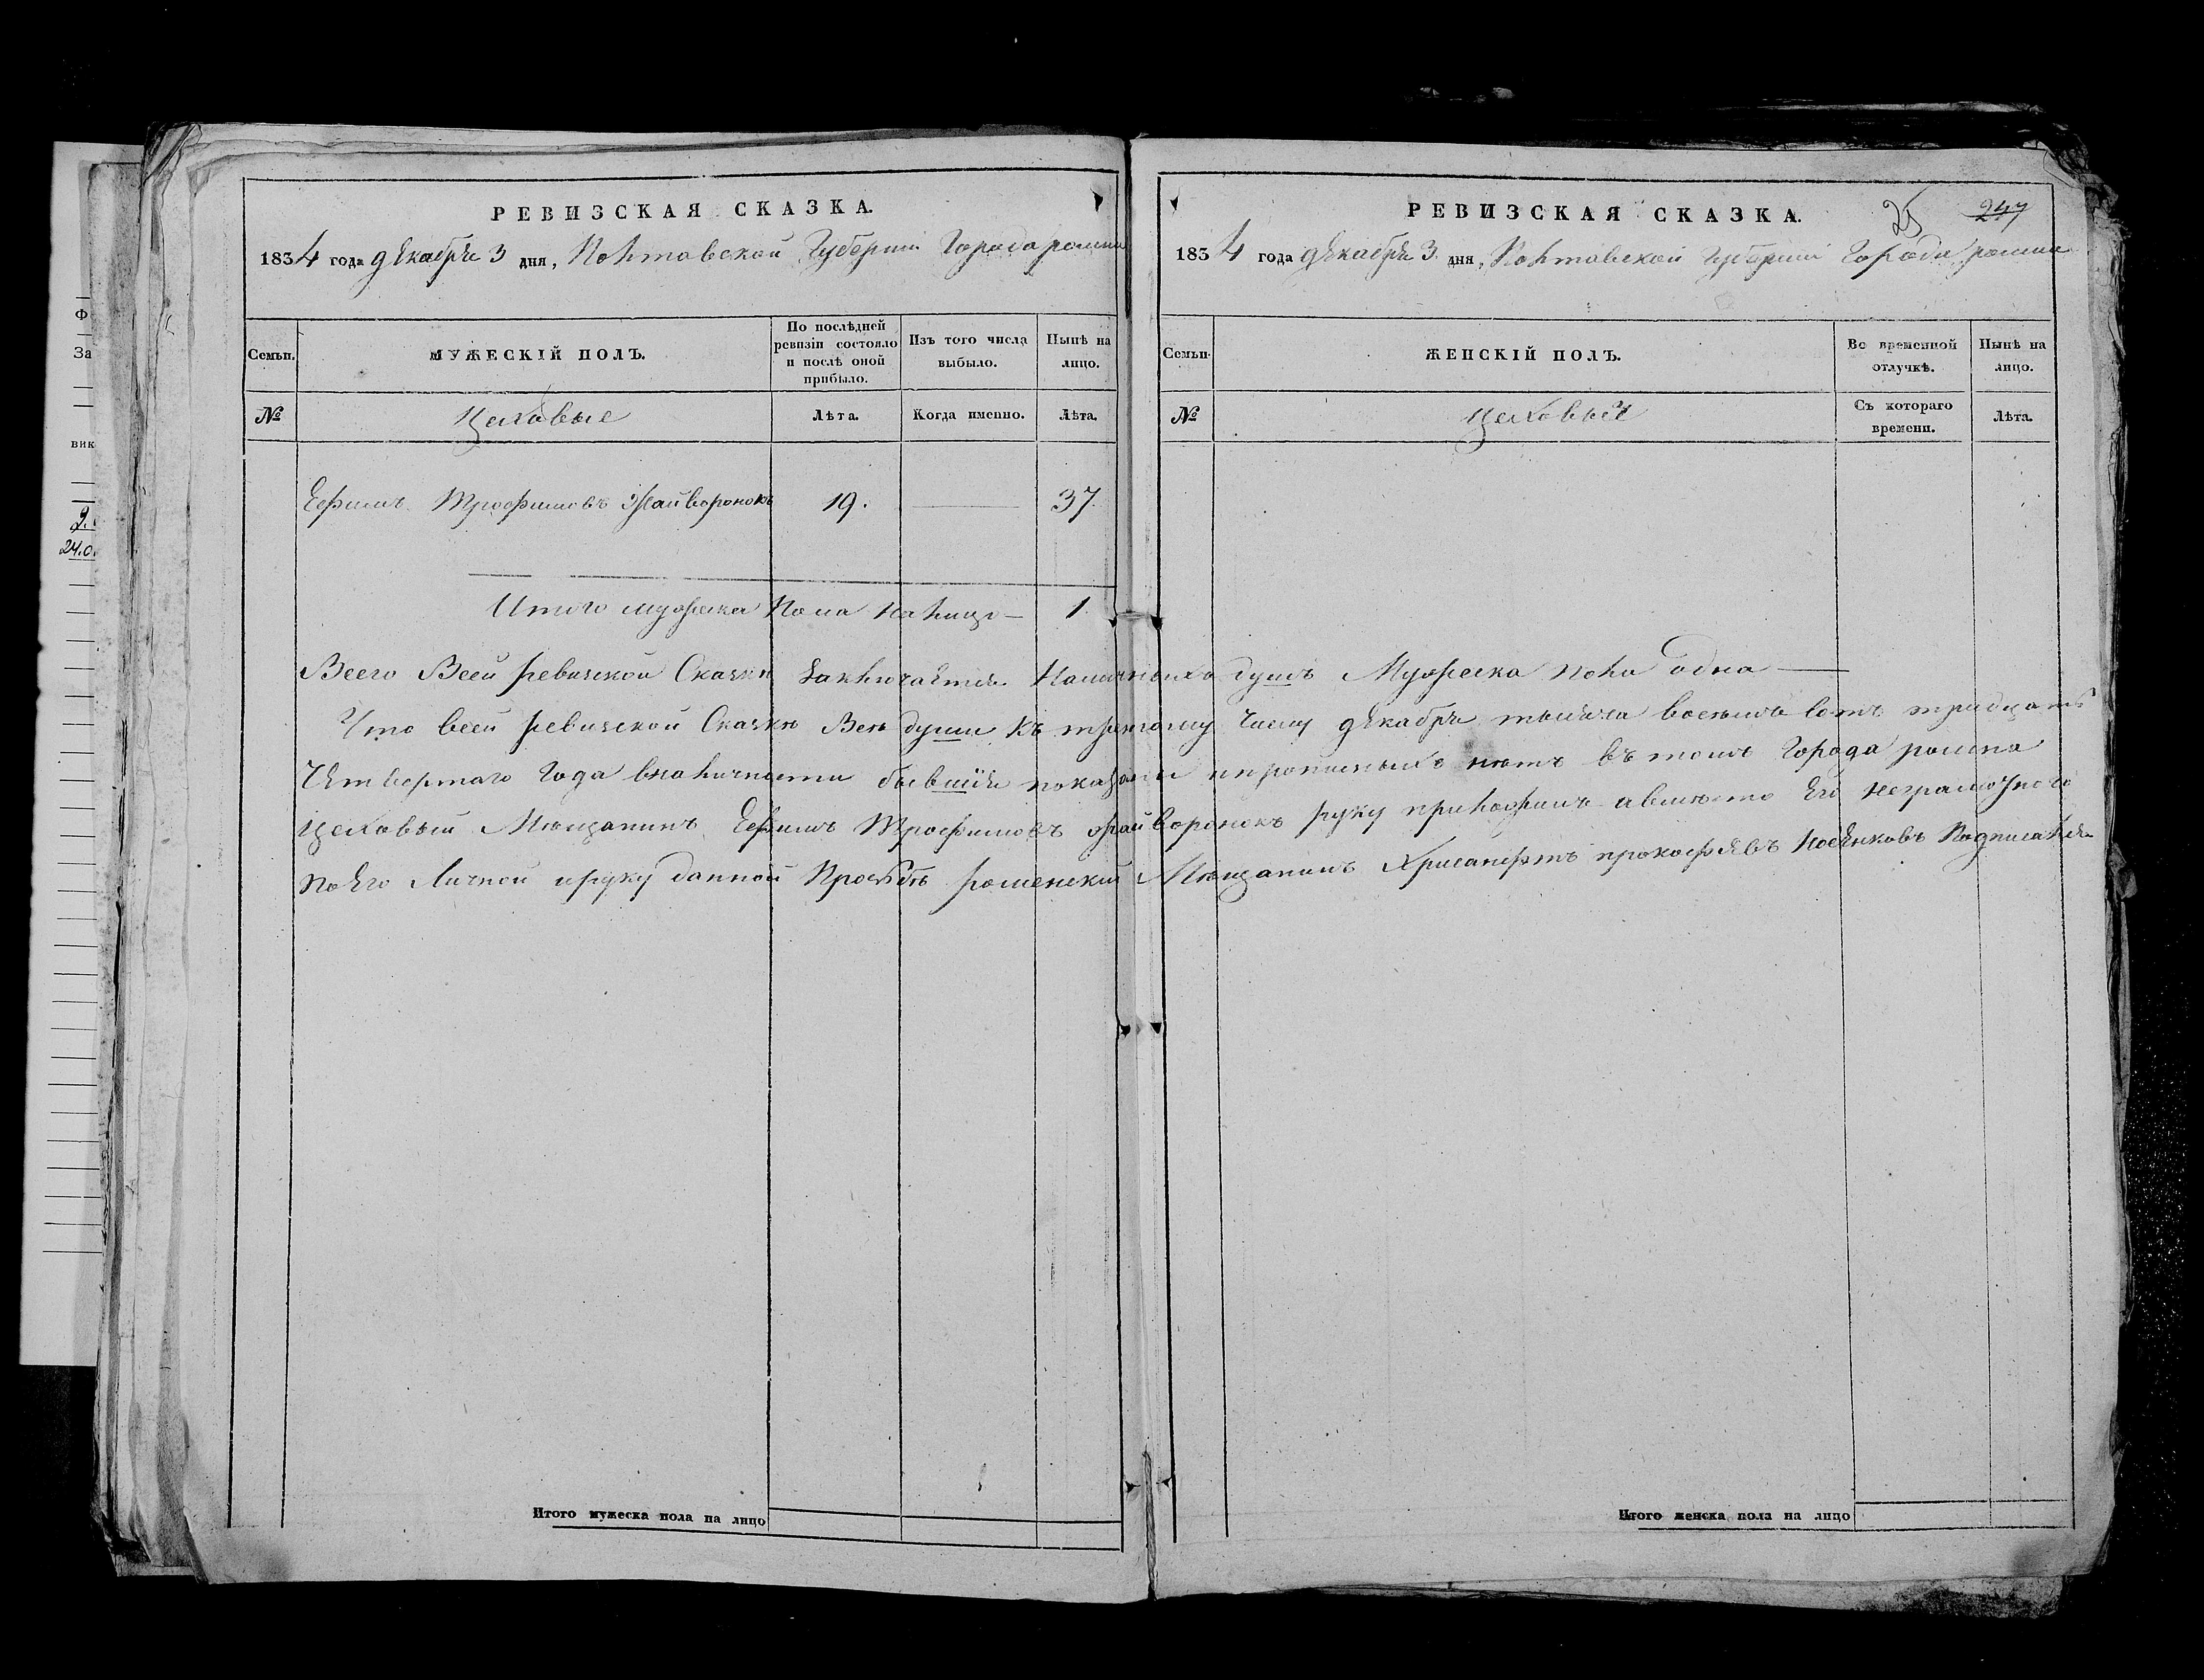 РЕВИЗСКАЯ СКАЗКА.
1834 года декабря 3 дня, Полтавской Губернии Города ромна
Семьи.
МУЖЕСКІЙ ПОЛЪ.
По послѣдней ревизіи состояло и послѣ оной прибыло.
Изъ того числа выбыло.
Нынѣ на лицо.
№
Цеховые
Лѣта.
Когда именно.
Лѣта.
Ефимъ Трофимовъ Жайворонокъ 19. — 37.
Итого мужеска Пола Налицо — 1
РЕВИЗСКАЯ СКАЗКА.
25 247
1834 года декабря 3 дня, Полтавской Губернии Города ромна
Семьи.
ЖЕНСКІЙ ПОЛЪ.
Во временной отлучкѣ.
Нынѣ на лицо.
№
Цеховые
Съ котораго времени.
Лѣта.
Всего Всей ревизской Сказки заключается Наличныхъ душъ Мужеска пола одна —
Что всей ревизской Сказке Все души къ третому числу декабря тысяча восемъ сотъ тридцать
Четвертаго Года вналичности бывшия показаны ипрописныхъ нетъ въ томъ Города ромна
Цеховый Мещанинъ Ефимъ Трофимовъ жайворонокъ руку приложилъ авместо Его неграмотного
поЕго Личной ируку данной Прозбе роменский Мещанинъ Хрисанфъ прокофьевъ Подписался
Итого мужеска пола на лицо
Итого женска пола на лицо
Ф
За
вик
9.
24.0.